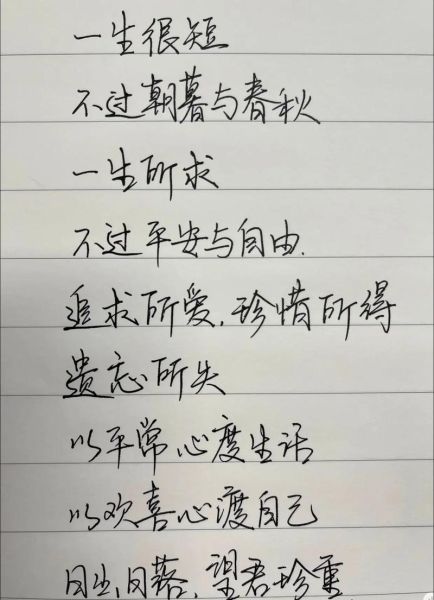 一生很短
不过朝暮与春秋
一生所求
不过平安与自由.
追求所爱,珍惜所得
遗忘所失
以平常心度生活
以欢喜心渡自己
日生,日落,望君珍重